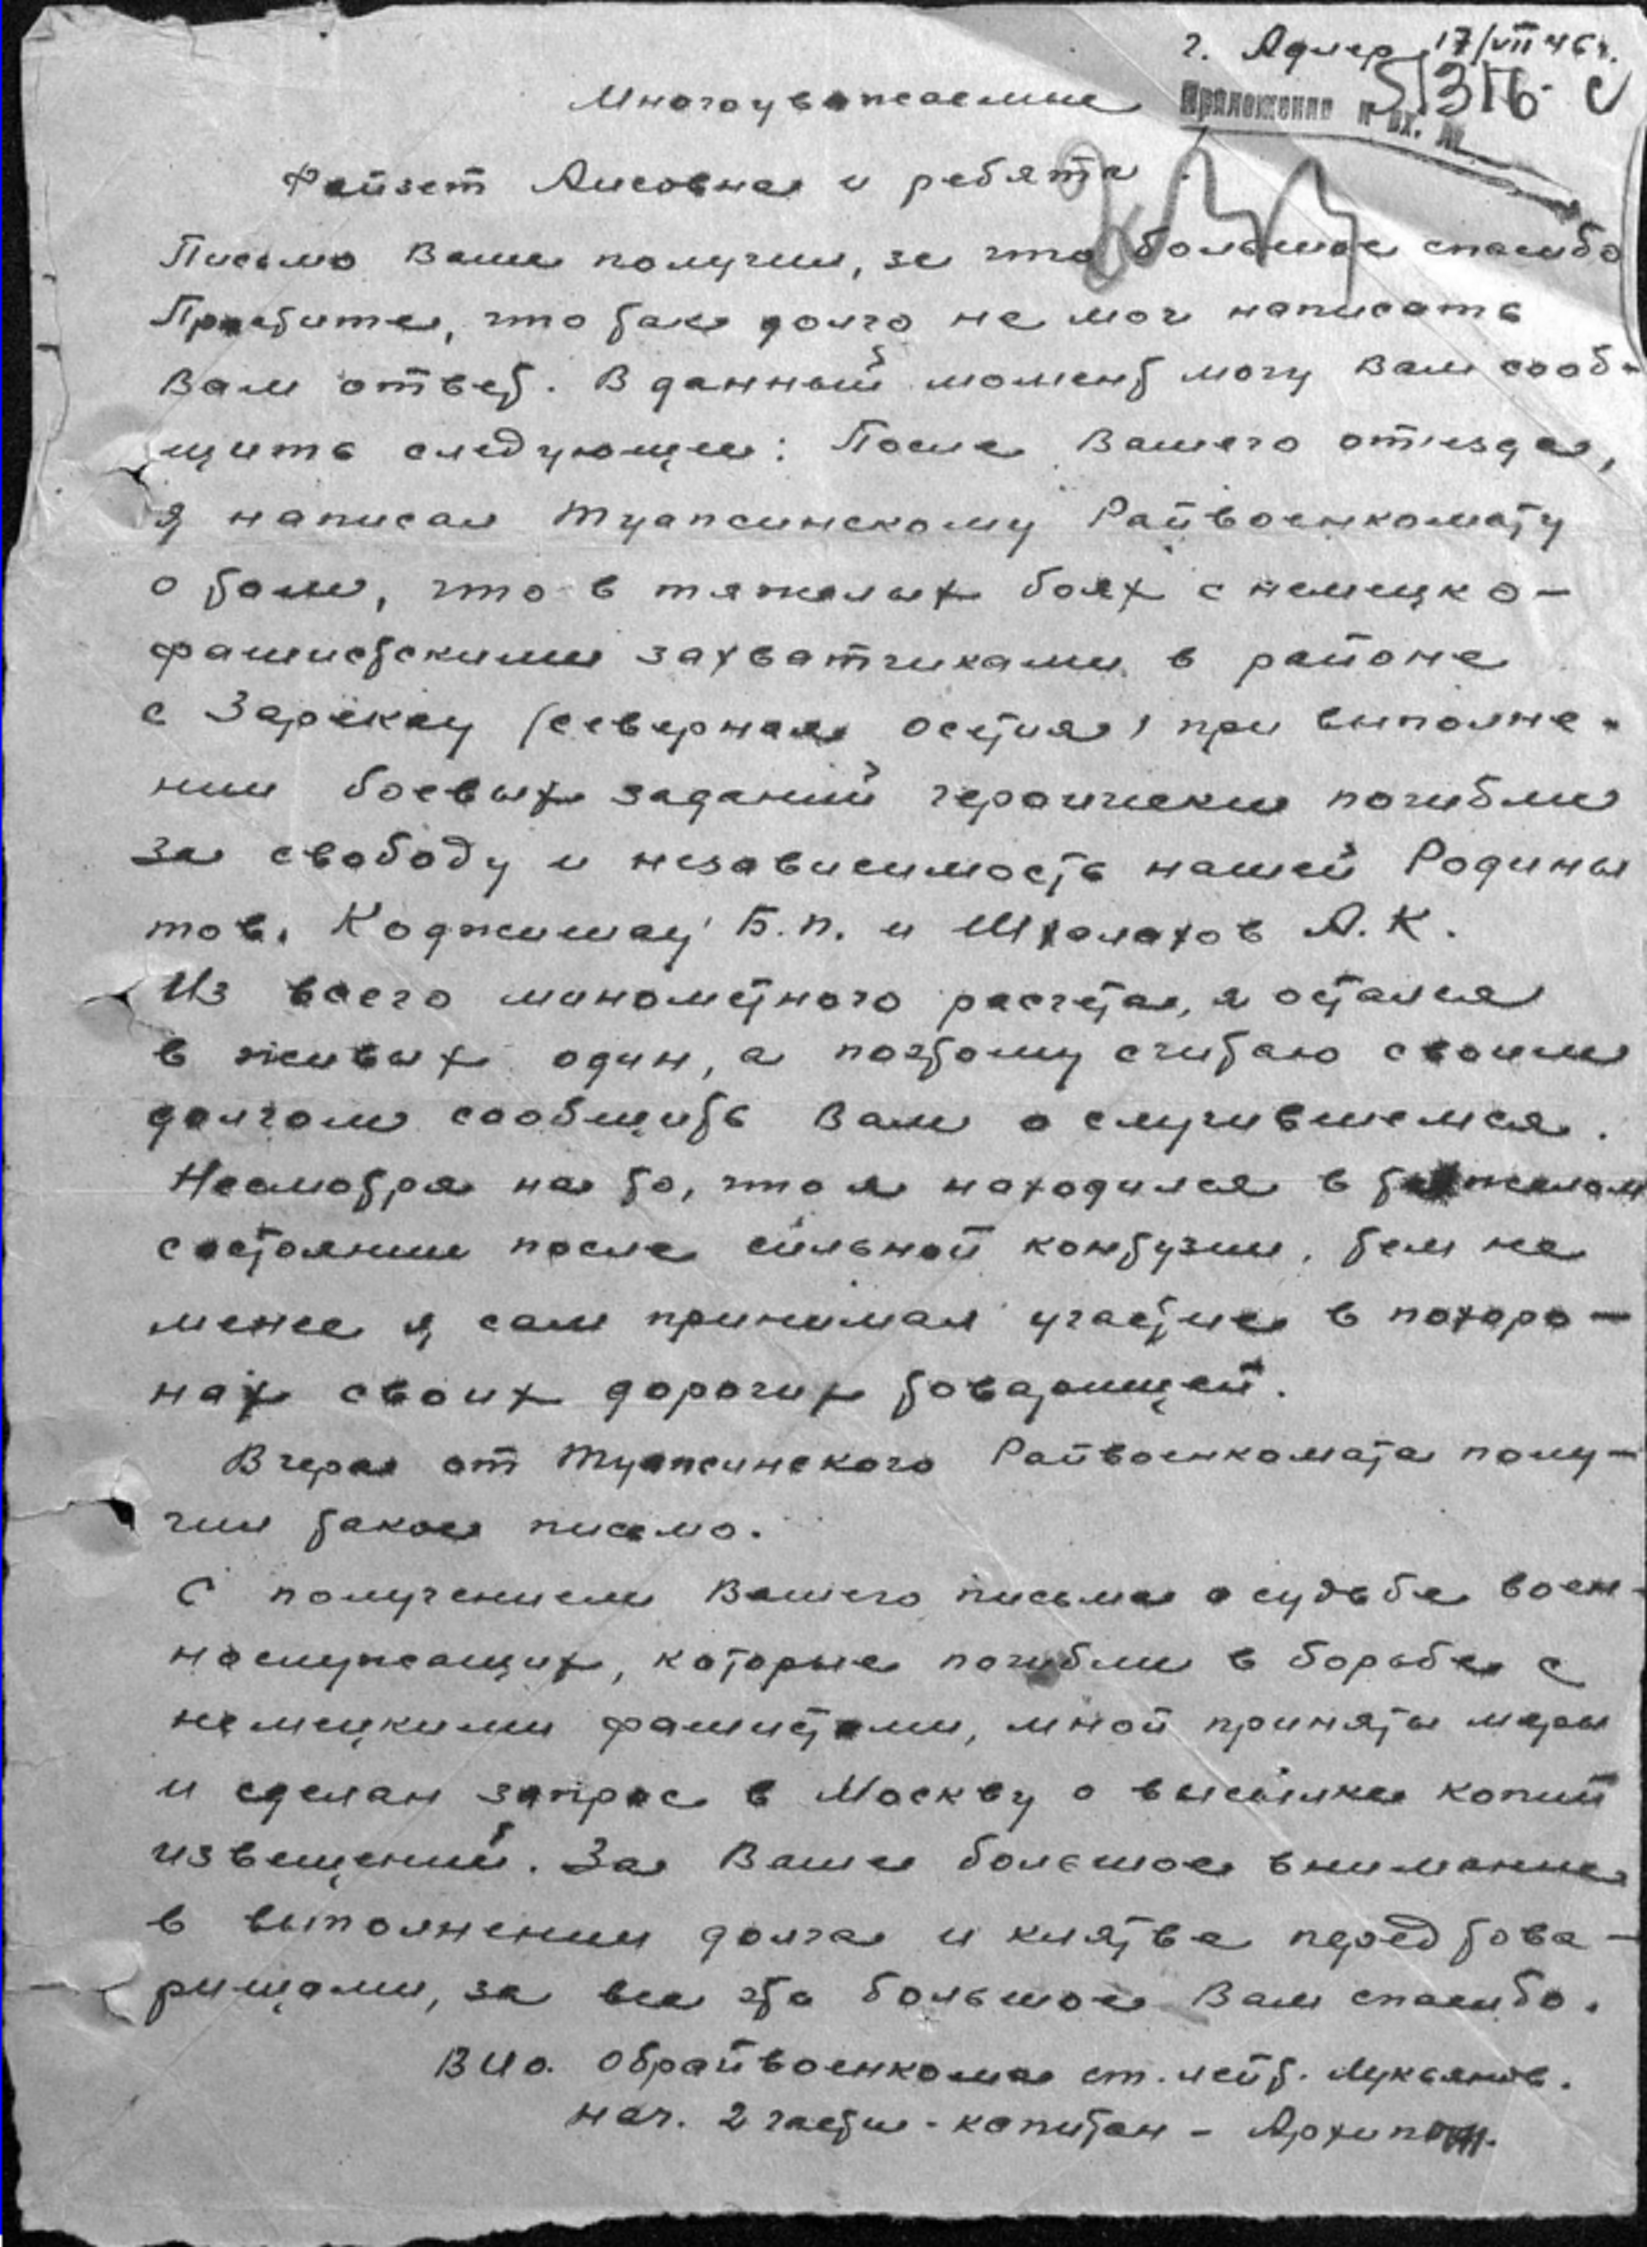 г. Адлер 17/VII 46 г.
Многоуважаемые
Приложение к вх. №
Файзет Аисовна и ребята.
Письмо Ваше получил, за что большое спасибо
Простите, что так долго не мог написать
Вам ответ. В данный момент могу Вам сооб-
щить следующее: После Вашего отъезда,
я написал Туапсинскому Райвоенкомату
о том, что в тяжелых боях с немецко-
фашистскими захватчиками в районе
с Зарекау (северная Осетия) при выполне-
нии боевых заданий героически погибли
за свободу и независимость нашей Родины
тов. Коджешау Б.П. и Шхалахов А.К.
Из всего минометного расчета, я остался
в живых один, а поэтому считаю своим
долгом сообщить Вам о случившемся.
Несмотря на то, что я находился в тяжелом
состоянии после сильной контузии, тем не
менее я сам принимал участие в похоро-
нах своих дорогих товарищей.
Вчера от Туапсинского Райвоенкомата полу-
чил такое письмо.
С получением Вашего письма о судьбе воен-
нослужащих, которые погибли в борьбе с
немецкими фашистами, мной приняты меры
и сделан запрос в Москву о высылке копий
извещений. За Ваше большое внимание
в выполнении долга и клятве перед това-
рищами, за все это большое Вам спасибо.
ВИО. Обрайвоенкома ст. лейт. Лукьянов.
нач. 2 части - капитан -